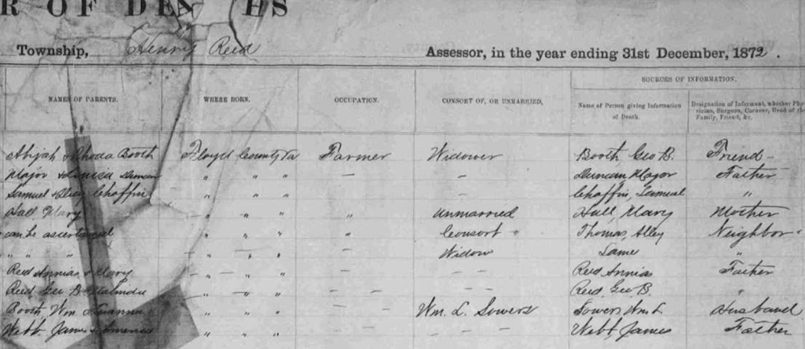 R OF DE HS
Township, Henry Reed Assessor, in the year ending 31st December, 1872.
SOURCES OF INFORMATION.
NAMES OF PARENTS. WHERE BORN. OCCUPATION. CONSORT OF, OR UNMARRIED, Name of Person giving Information of Death. Designation of Informant, whether Physician, Surgeon, Coroner, Head of the Family, Friend, &c.
Abijah & Rhoda Booth Floyd County Va Farmer Widower Booth Geo B. Friend
Major Louisa Duncan " " " - Duncan Major Father
Samuel Chaffin " " " - Chaffin, Samuel "
Hall Mary " " " " Unmarried Hall Mary Mother
can be ascertained " " " " Consort " Thomas, Alley Neighbor
" " " - " - Widow Same "
Reed Annias & Mary " - " - - - Reed Annias Father
Reed Geo B " - " - - - Reed Geo B. "
Booth Wm " - " - - Wm. L. Sowers Sowers Wm L Husband
Webb James " - " - - - Webb, James Father